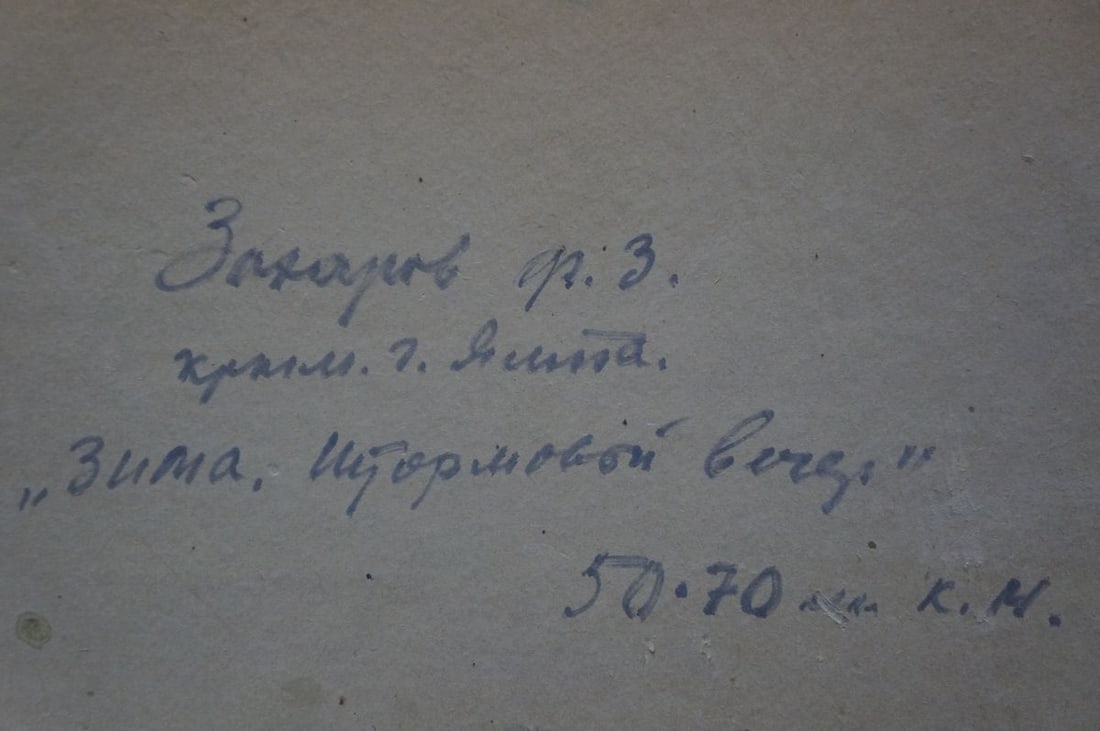 Захаров Ф. З.
крым. г. Ялта.
„Зима, Штормовой вечер."
50·70 к. м.